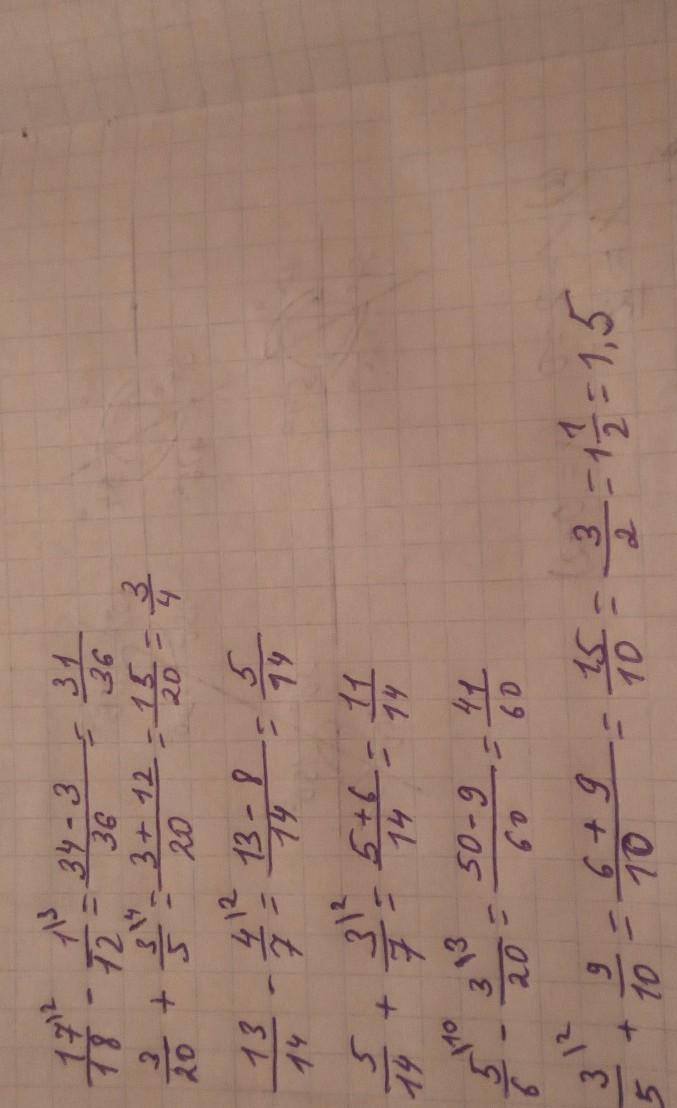 17\2/18 - 1\3/12 = 34-3/36 = 31/36
3/20 + 3\4/5 = 3+12/20 = 15/20 = 3/4
13/14 - 4\2/7 = 13-8/14 = 5/14
5/14 + 3\2/7 = 5+6/14 = 11/14
5\10/6 - 3\3/20 = 50-9/60 = 41/60
3\2/5 + 9/10 = 6+9/10 = 15/10 = 3/2 = 1 1/2 = 1,5